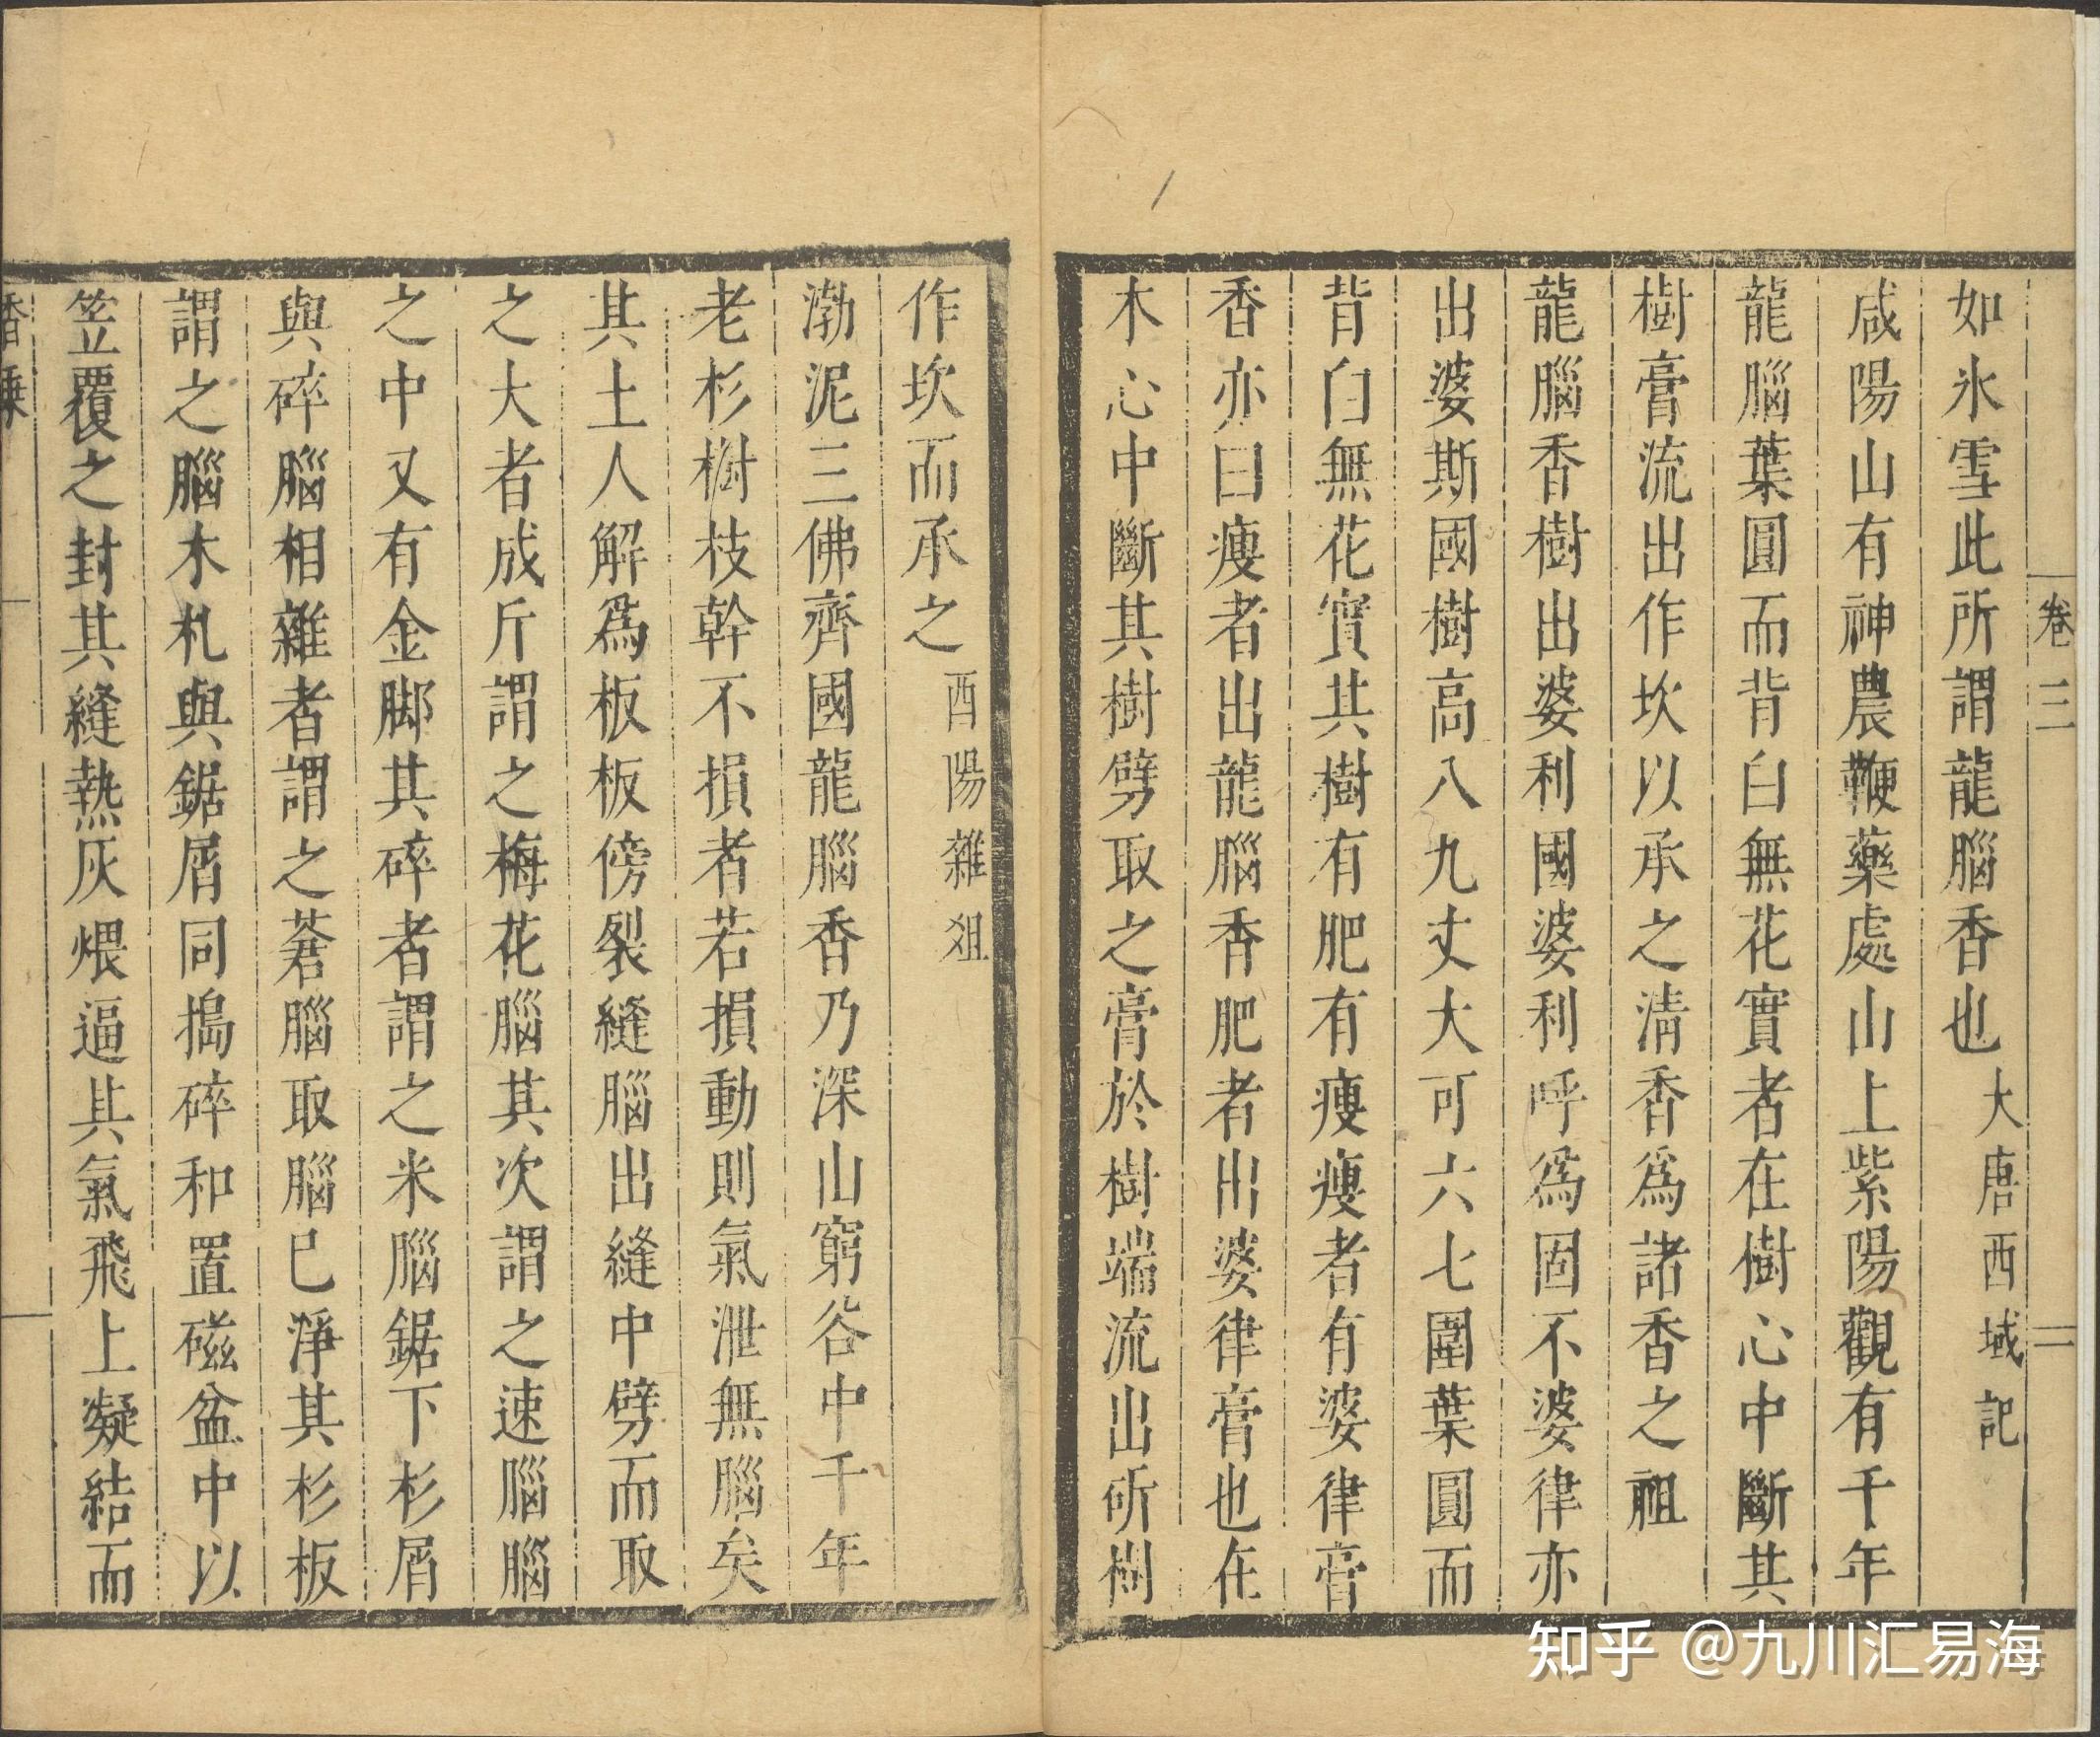 卷三
二
如氷雪此所謂龍腦香也大唐西域記
咸陽山有神農鞭藥處山上紫陽觀有千年
龍腦葉圓而背白無花實者在樹心中斷其
樹膏流出作坎以承之清香為諸香之祖
龍腦香樹出婆利國婆利呼為固不婆律亦
出婆斯國樹高八九丈大可六七圍葉圓而
背白無花實其樹有肥有瘦瘦者有婆律膏
香亦曰瘦者出龍腦香肥者出婆律膏也在
木心中斷其樹劈取之膏於樹端流出斫樹
作坎而承之酉陽雜俎
渤泥三佛齊國龍腦香乃深山窮谷中千年
老杉樹枝幹不損者若損動則氣泄無腦矣
其土人解為板板傍裂縫腦出縫中劈而取
之大者成斤謂之梅花腦其次謂之速腦腦
之中又有金脚其碎者謂之米腦鋸下杉屑
與碎腦相雜者謂之蒼腦取腦已淨其杉板
謂之腦木札與鋸屑同搗碎和置磁盆中以
笠覆之封其縫熱灰煨逼其氣飛上凝結而
香乘
知乎 @九川汇易海